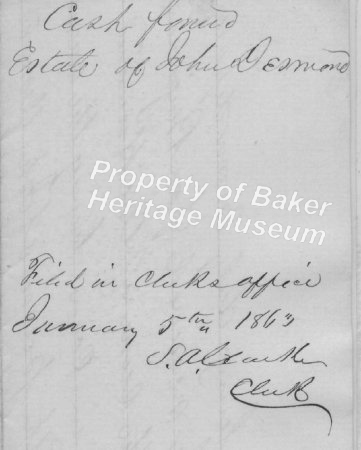 Cash found
Estate of John Desmond
Property of Baker
Heritage Museum
Filed in Clerks office
January 5th 1863
S. A.
Clerk